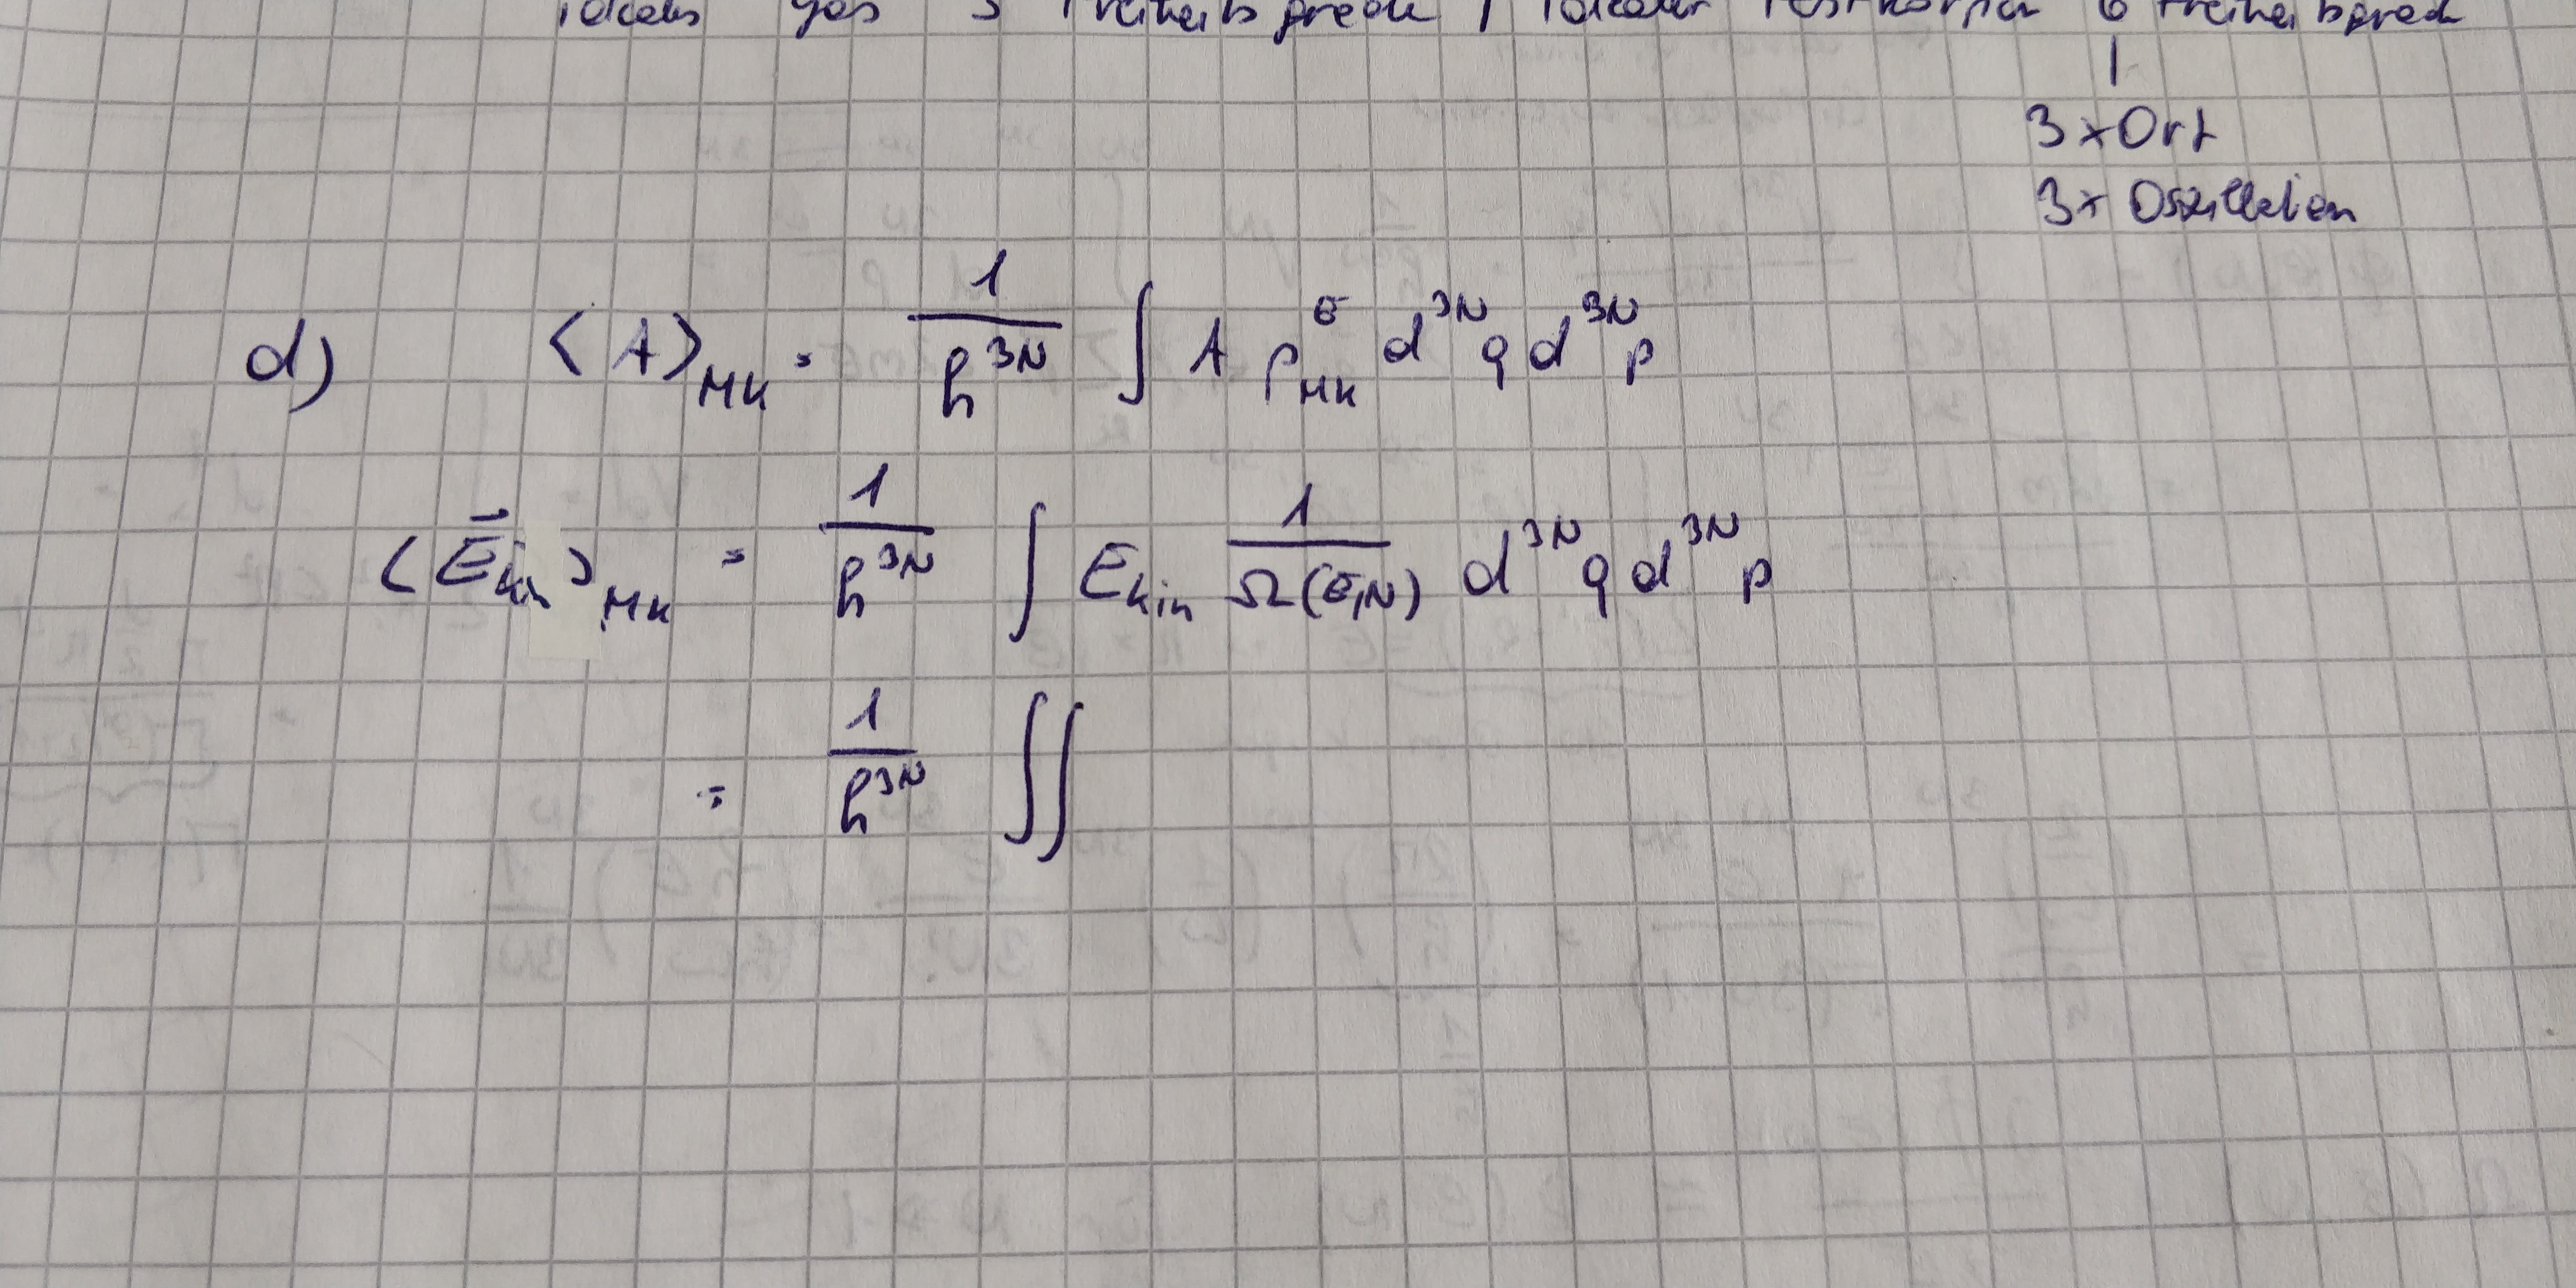 ideales Gas 3 Freiheitsgrade / idealer Festkörper 6 Freiheitsgrade
|
3 x Ort
3 x Oszillation
d) ⟨A⟩_MK = 1/h^3N ∫ A ρ_MK^E d^3N q d^3N p
⟨E̅_kin⟩_MK = 1/h^3N ∫ E_kin 1/Ω(E,N) d^3N q d^3N p
= 1/h^3N ∫∫